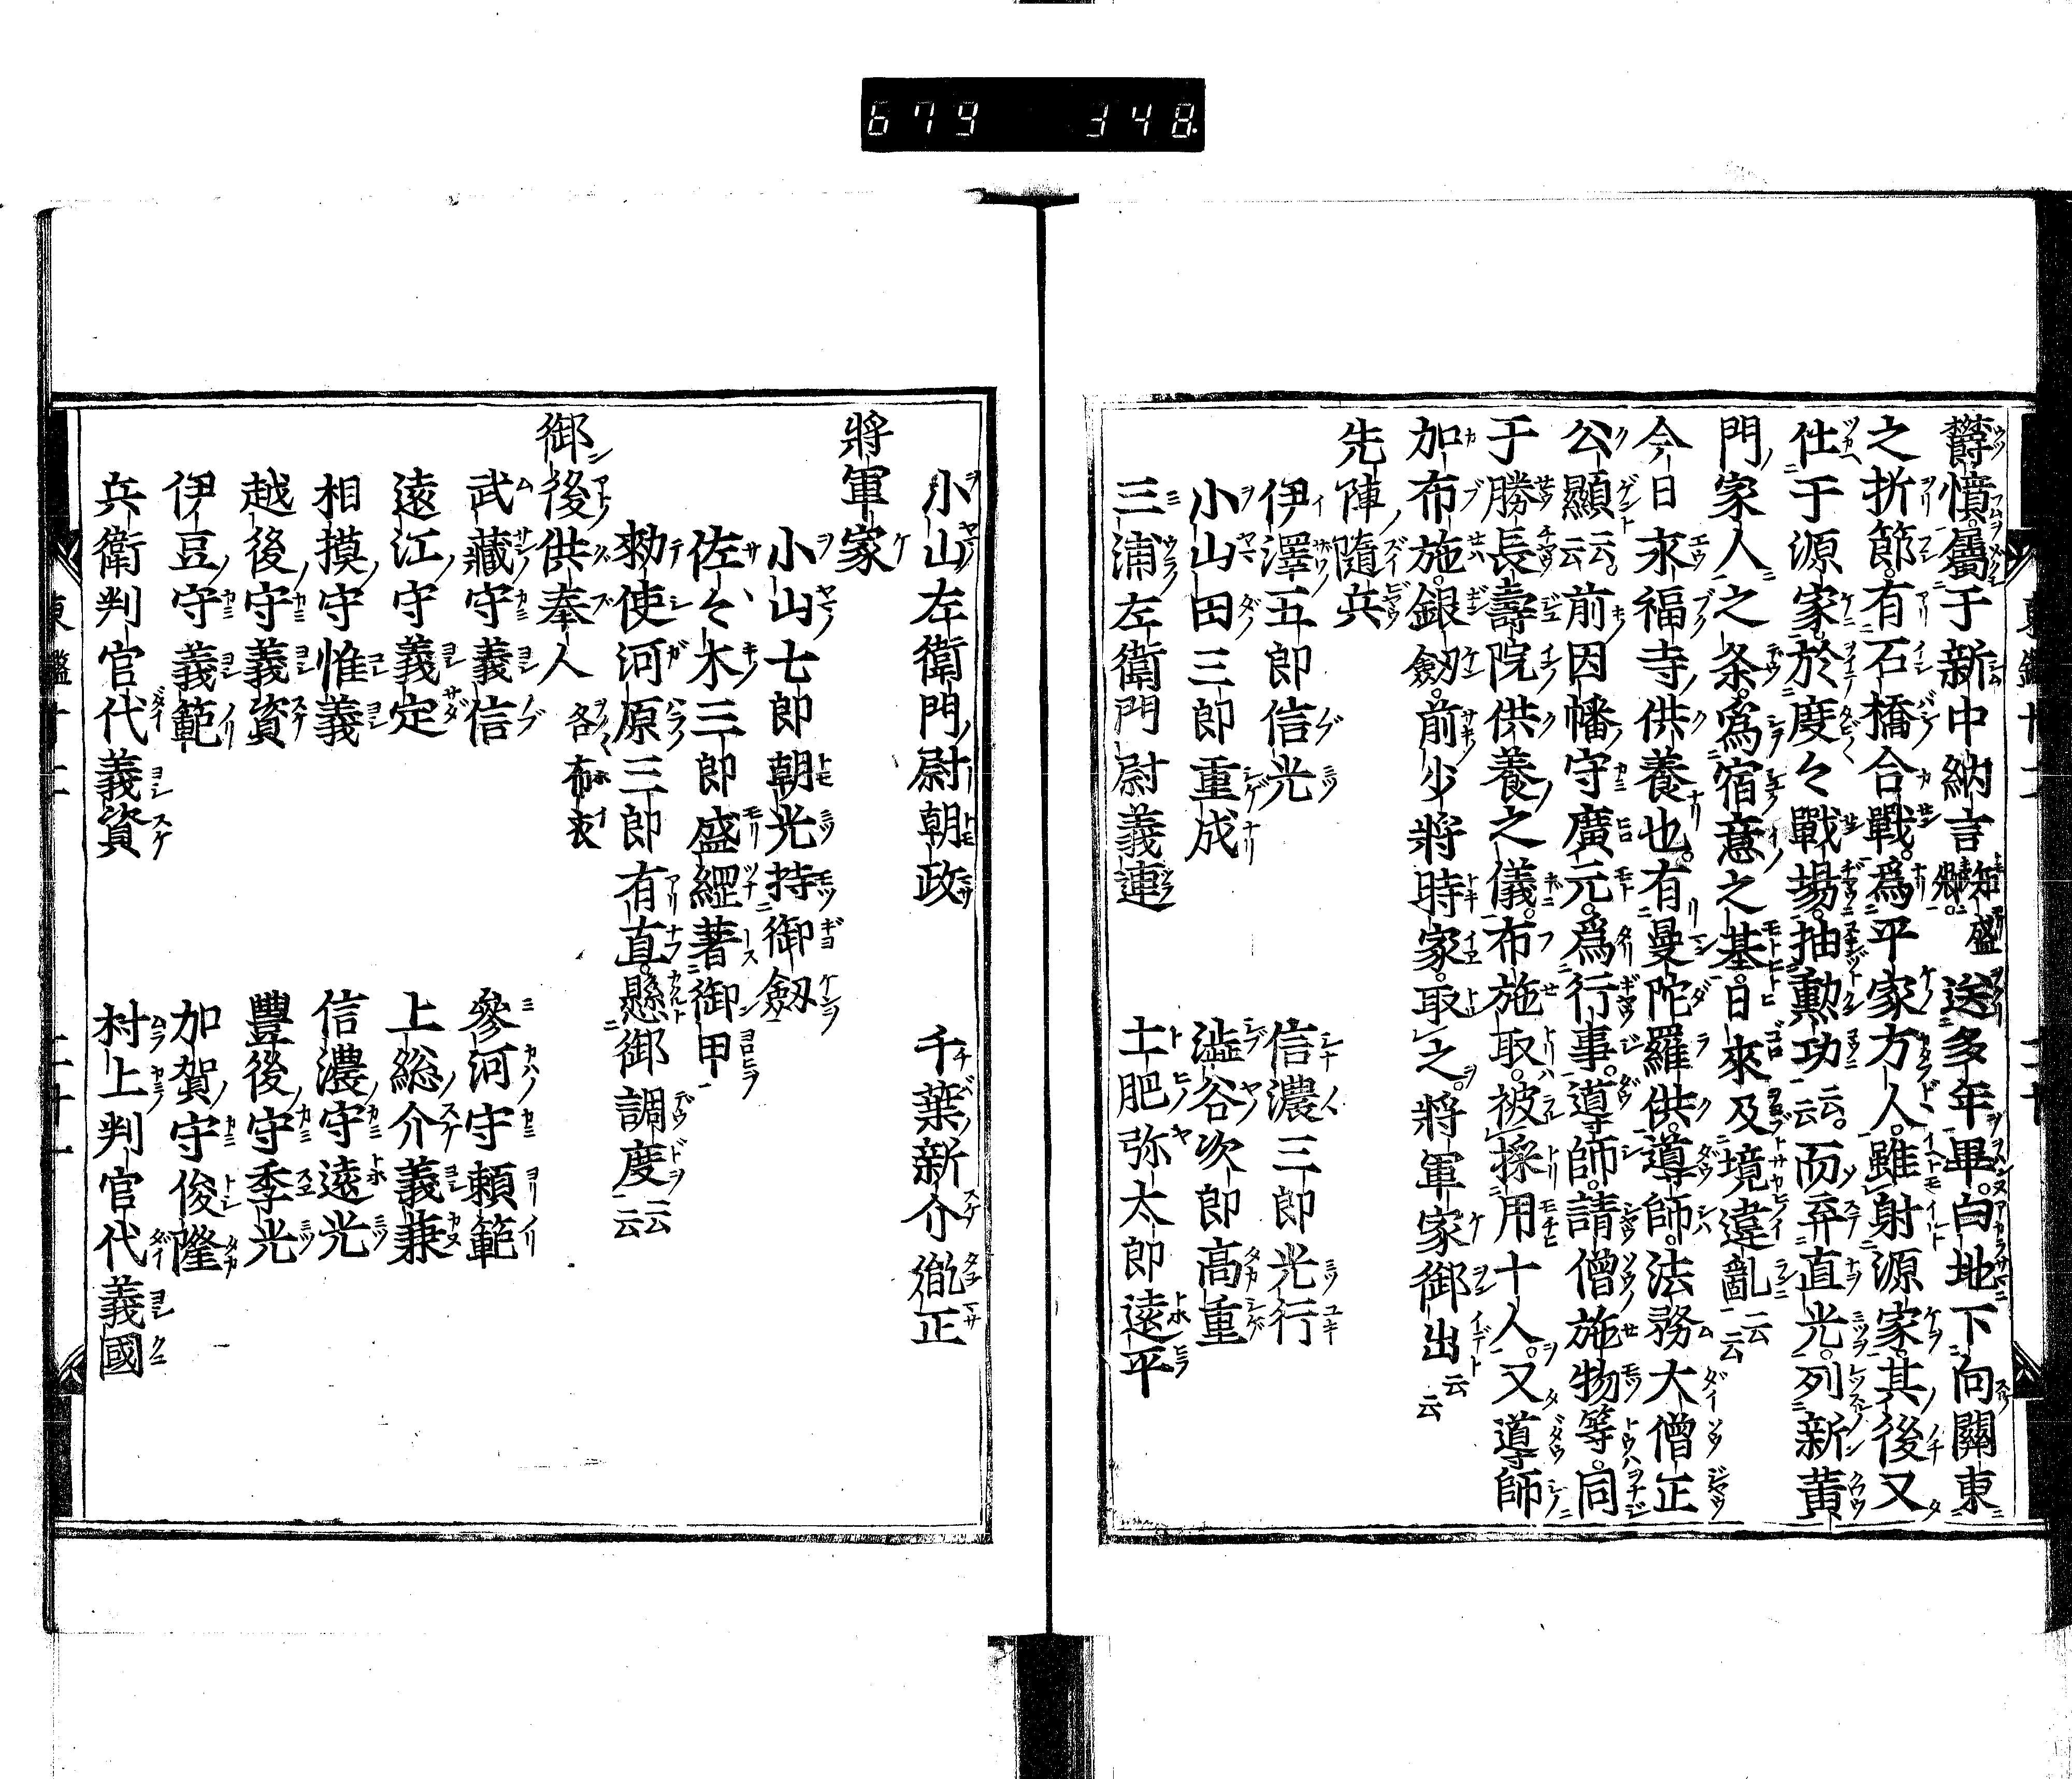 679 348
欝憤屬于新中納言知盛卿送多年畢白地下向關東
之折節有石橋合戰爲平家方人雖射源家其後又
仕于源家於度々戰塲抽勲功云云而弃直光列新黄
門家人之条爲宿意之基日來及境違亂云云
今日永福寺供養也有曼陀羅供導師法務大僧正
公顯云云前因幡守廣元爲行事導師請僧施物等同
于勝長壽院供養之儀布施取被採用十人又導師
加布施銀劔前少將時家取之將軍家御出云云
先陣隨兵
伊澤五郎信光 信濃三郎光行
小山田三郎重成 澁谷次郎高重
三浦左衛門尉義連 土肥弥太郎遠平
小山左衛門尉朝政 千葉新介胤正
將軍家
小山七郎朝光持御劔
佐々木三郎盛綱著御甲
勅使河原三郎有直懸御調度云云
御後供奉人 各布衣
武藏守義信 參河守頼範
遠江守義定 上総介義兼
相摸守惟義 信濃守遠光
越後守義資 豐後守季光
伊豆守義範 加賀守俊隆
兵衛判官代義資 村上判官代義國